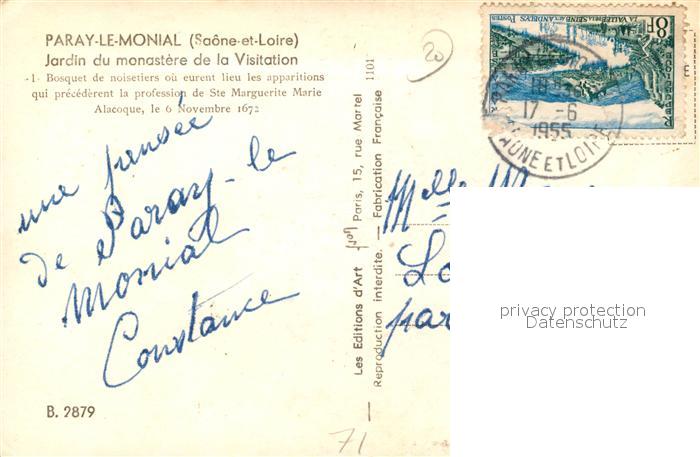 PARAY-LE-MONIAL (Saône-et-Loire)
Jardin du monastère de la Visitation
-1- Bosquet de noisetiers où eurent lieu les apparitions
qui précédèrent la profession de Ste Marguerite Marie
Alacoque, le 6 Novembre 1672
une pensée
de Paray-le
Monial
Constance
B. 2879
20
1101
Les Editions d'Art Paris, 15, rue Martel
Reproduction interdite. — Fabrication Française
71
8F
LA VALLÉE DE LA SEINE AUX ANDELYS
POSTES
17 -6
1955
SAONE ET LOIRE
Melle
par
E
privacy protection
Datenschutz